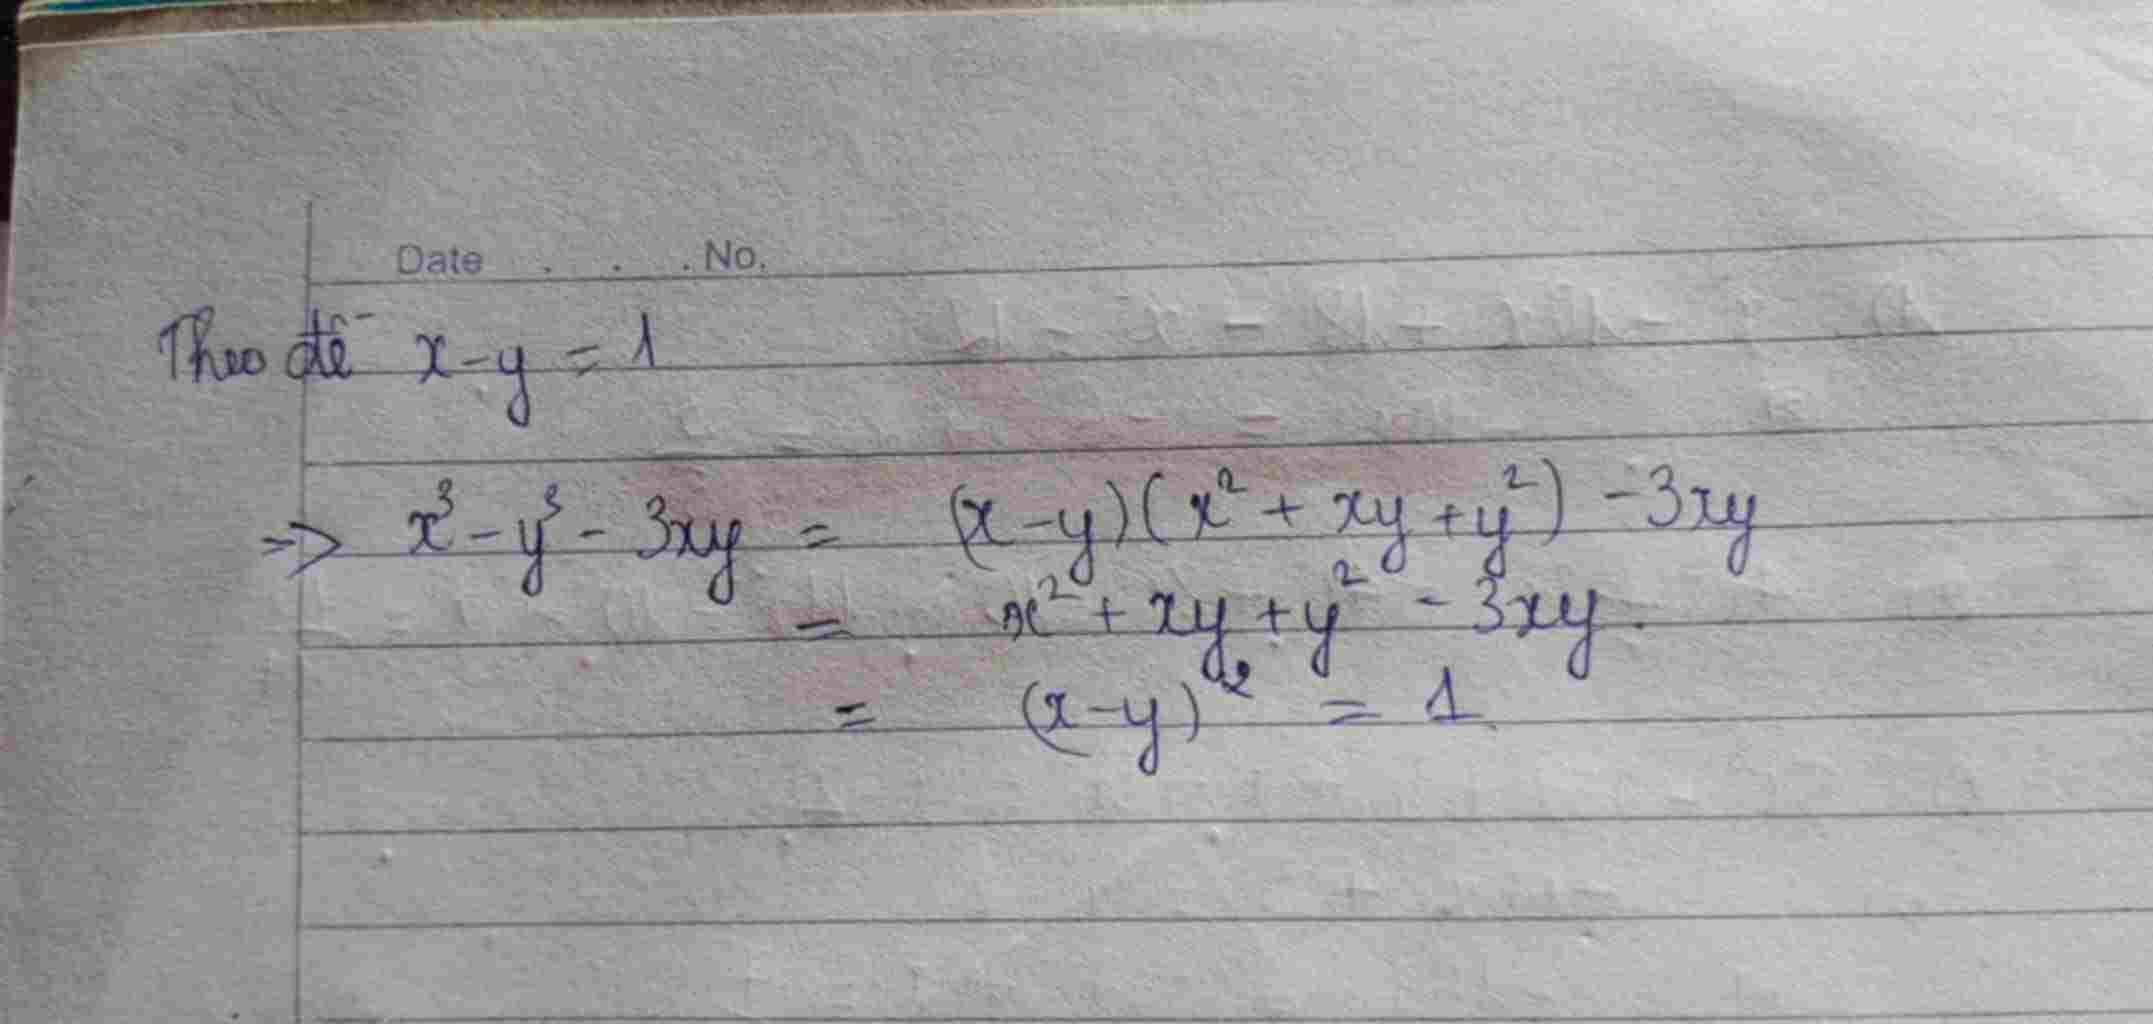 Date . . . No.
Theo đề x - y = 1
=> x³ - y³ - 3xy = (x - y)(x² + xy + y²) - 3xy
= x² + xy + y² - 3xy.
= (x - y)² = 1